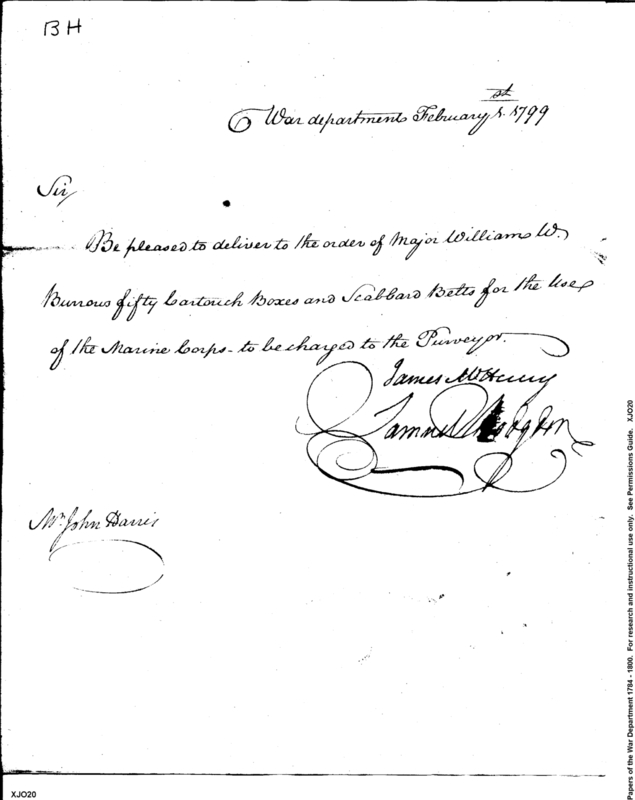 BH
War department February 1st. 1799
Sir,
Be pleased to deliver to the order of Major William W.
Burrows fifty Cartouch Boxes and Scabbard Belts for the Use
of the Marine Corps - to be charged to the Purveyor.
James McHenry
Samuel Hodgdon
Mr. John Harris
XJO20
Papers of the War Department 1784 - 1800. For research and instructional use only. See Permissions Guide. XJO20